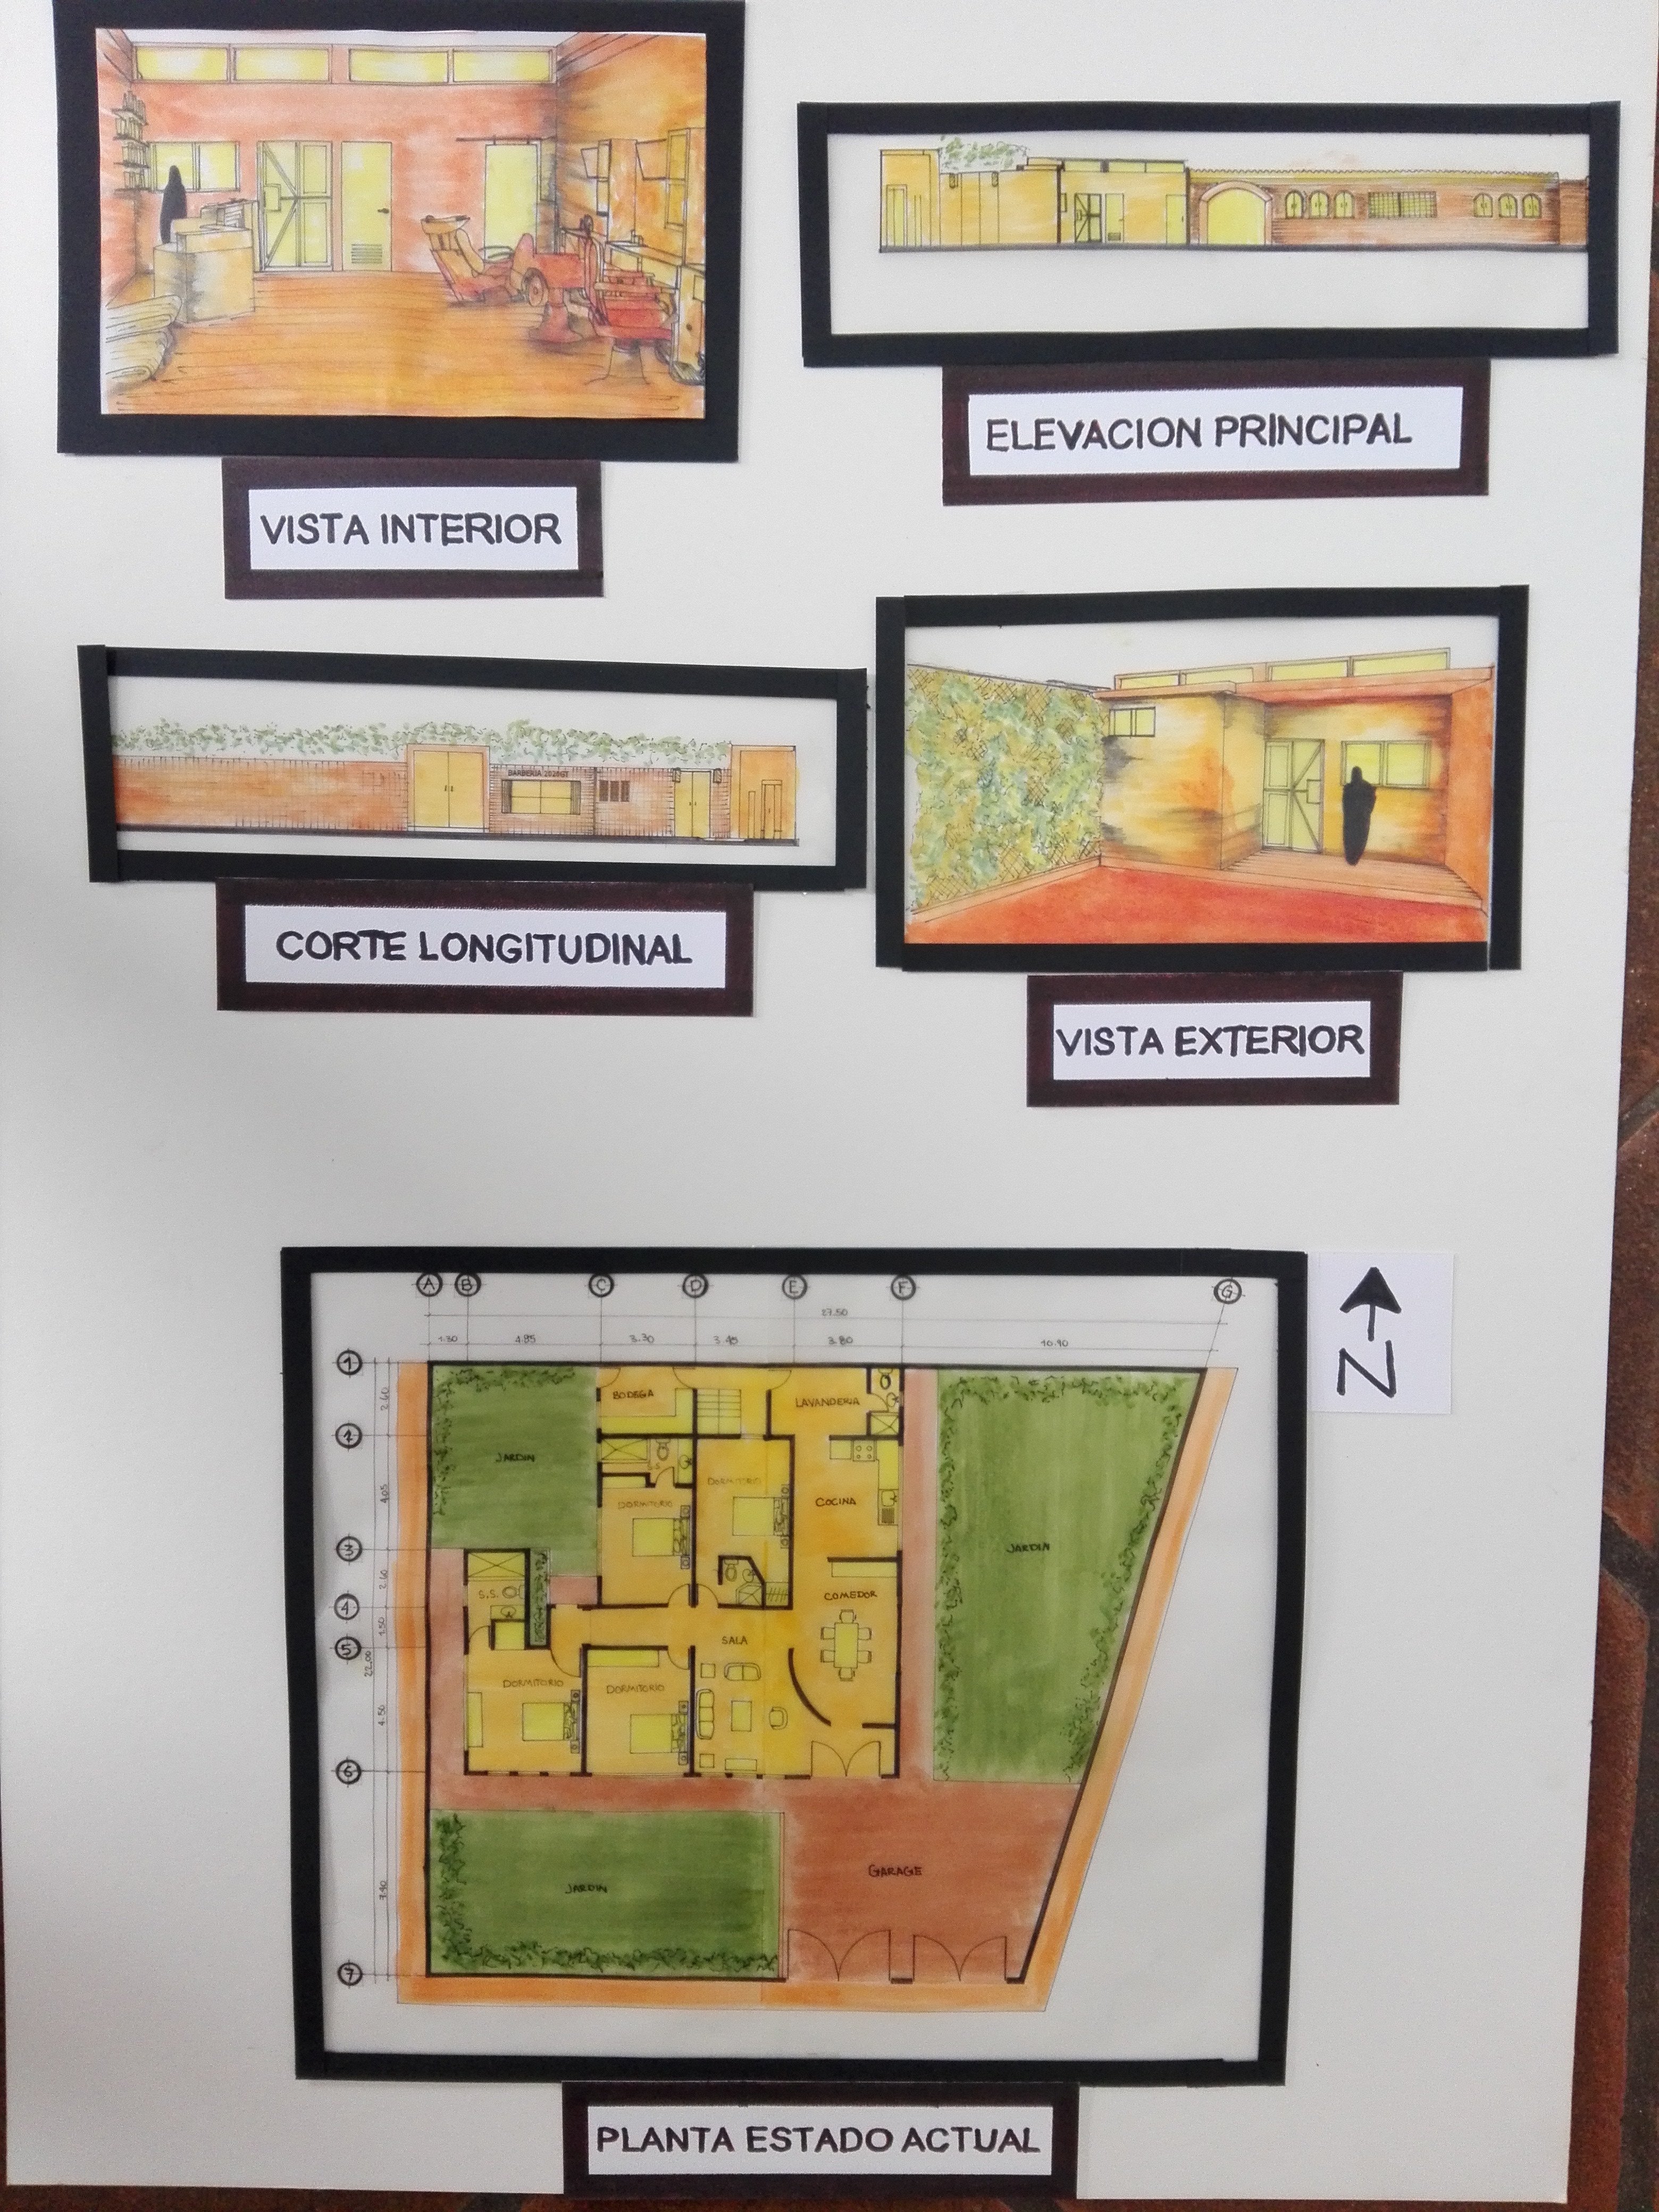 VISTA INTERIOR
ELEVACION PRINCIPAL
BARBERIA
CORTE LONGITUDINAL
VISTA EXTERIOR
N
A B C D E F G
27.50
1.30 4.85 3.30 3.45 3.80 10.90
1
2
3
4
5
6
7
2.60
4.05
2.60
1.50
22.00
4.50
7.40
BODEGA
LAVANDERIA
JARDIN
DORMITORIO
DORMITORIO
COCINA
JARDIN
S.S.
COMEDOR
SALA
DORMITORIO
DORMITORIO
GARAGE
JARDIN
PLANTA ESTADO ACTUAL